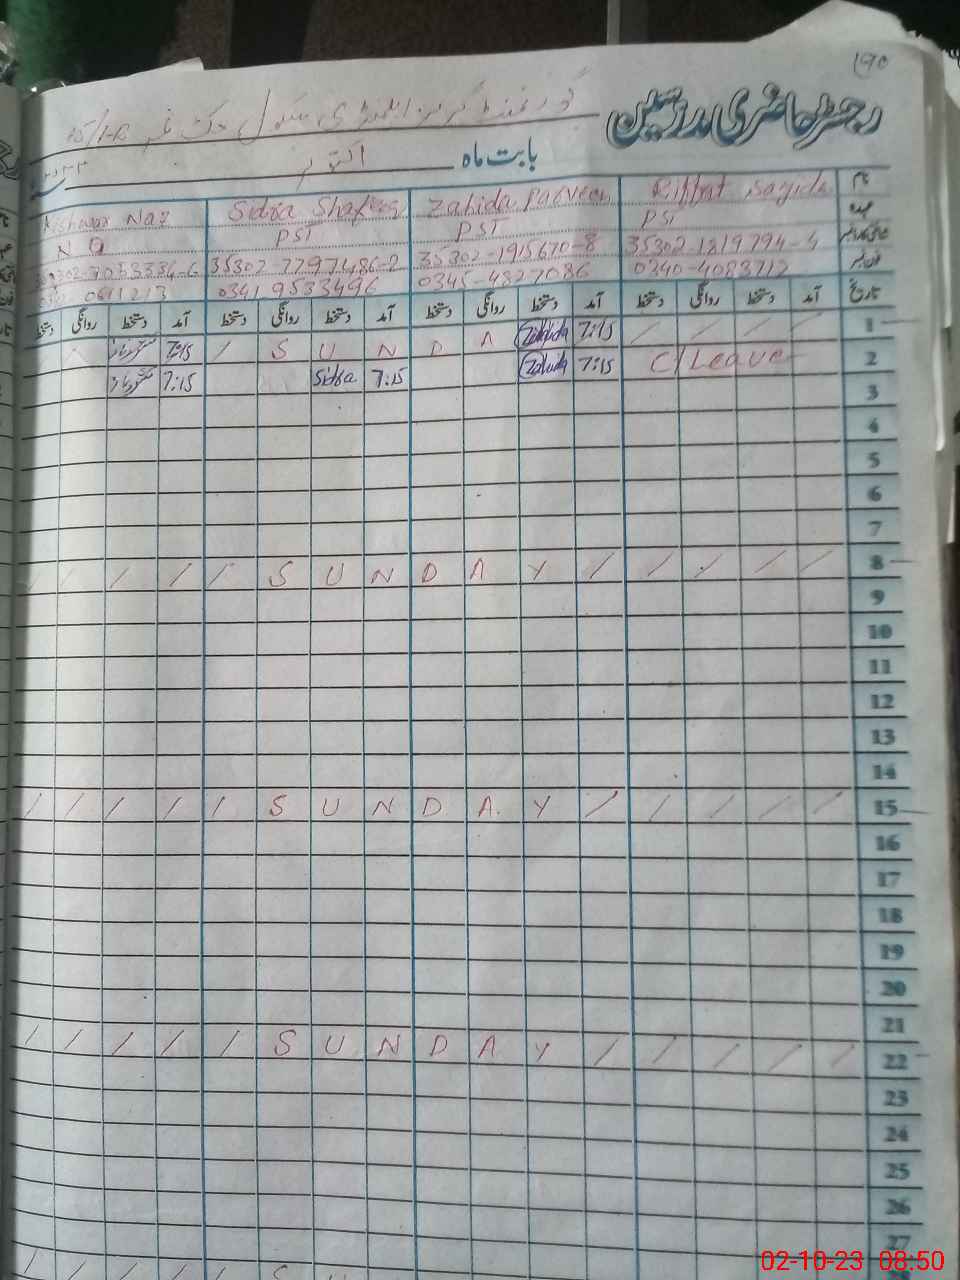 190
رجسٹر حاضری مدرسین
گورنمنٹ گرلز ایلیمنٹری سکول چک نمبر 15/1-R
بابت ماہ اکتوبر
نام Riffat Sajida Zahida Parveen Sidra Shafeeq Kishwar Naz
عہدہ PST PST PST N Q
35302-1819794-4 35302-1915670-8 35302-7797486-2
0340-4083712 0345-4827086 0341 9533496
تاریخ آمد دستخط روانگی دستخط آمد دستخط روانگی دستخط آمد دستخط روانگی دستخط آمد دستخط روانگی دستخط
1 / / / / 7:15 Zahida A D N U S / 7:15
2 C/Leave 7:15 Zahida 7:15 Sidra 7:15
3
4
5
6
7
8 / / / / / S U N D A Y / / / / /
9
10
11
12
13
14
15 / / / / / S U N D A Y / / / / /
16
17
18
19
20
21
22 / / / / / S U N D A Y / / / / /
23
24
25
26
27
28 S U N
02-10-23 08:50